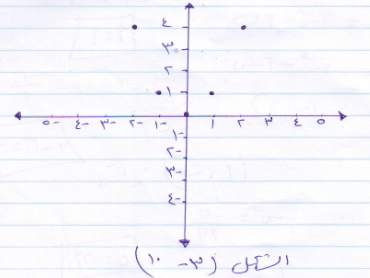 ٤
٣
٢
١
٥- ٤- ٣- ٢- ١- ١ ٢ ٣ ٤ ٥
١-
٢-
٣-
٤-
الشكل (٣- ١٠)